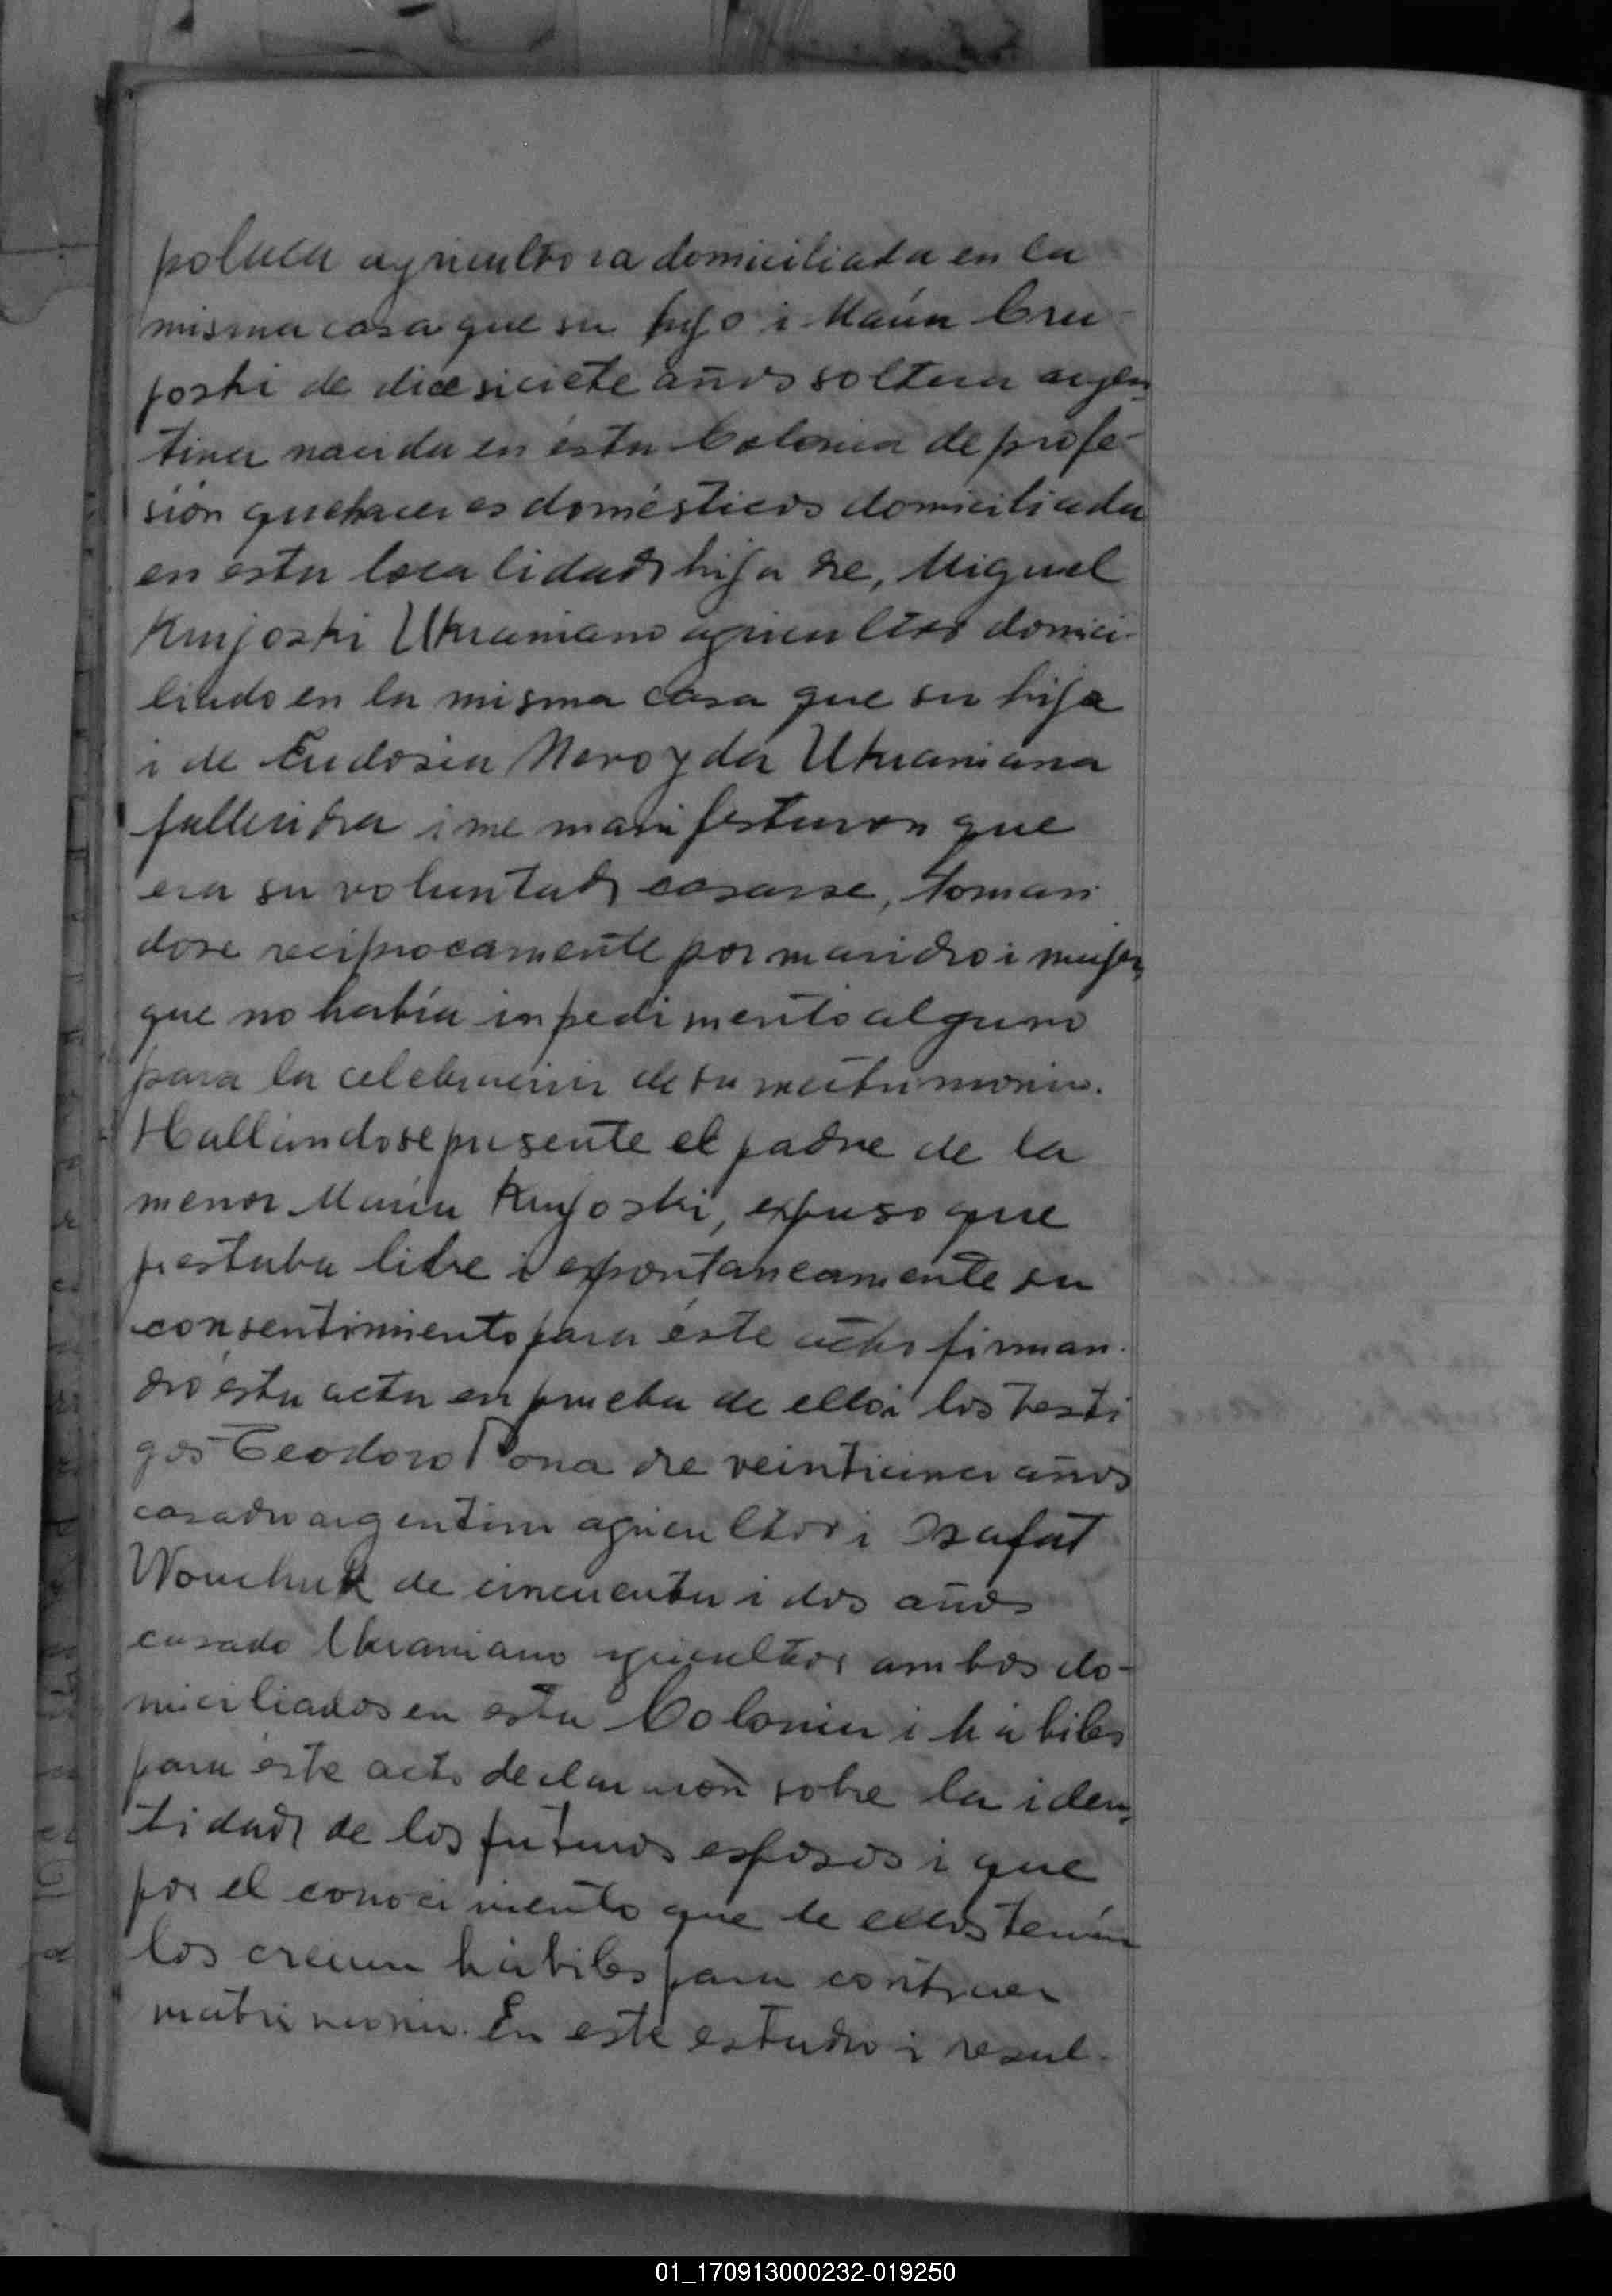 polaca agricultora domiciliada en la
misma casa que su hijo i María Cru-
joski de diesiciete años soltera argen-
tina nacida en ésta Colonia de profe-
sión quehaceres domésticos domiciliada
en ésta localidad hija de, Miguel
Krujoski Ukraniano agricultor domici-
liado en la misma casa que su hija
i de Eudosia Ukraniana
fallecida i me manifestaron que
era su voluntad casarse, toman
dose reciprocamente por marido i mujer,
que no había inpedimento alguno
para la celebración de su matrimonio.
Hallandose presente el padre de la
menor María Krujoski, expuso que
prestaba libre i expontaneamente su
consentimiento para éste acto firman-
do ésta acta en prueba de ello i los testi
gos Teodoro Pona de veinticinco años
casado argentino agricultor i Osafat
Wonchuk de cincuenta i dos años
casado Ukraniano agricultor ambos do-
miciliados en esta Colonia i hábiles
para éste acto declararon sobre la iden-
tidad de los futuros esposos i que
por el conocimiento que de ellos tenían
los creian hábiles para contraer
matrimonio. En este estado i resul-
01_170913000232-019250